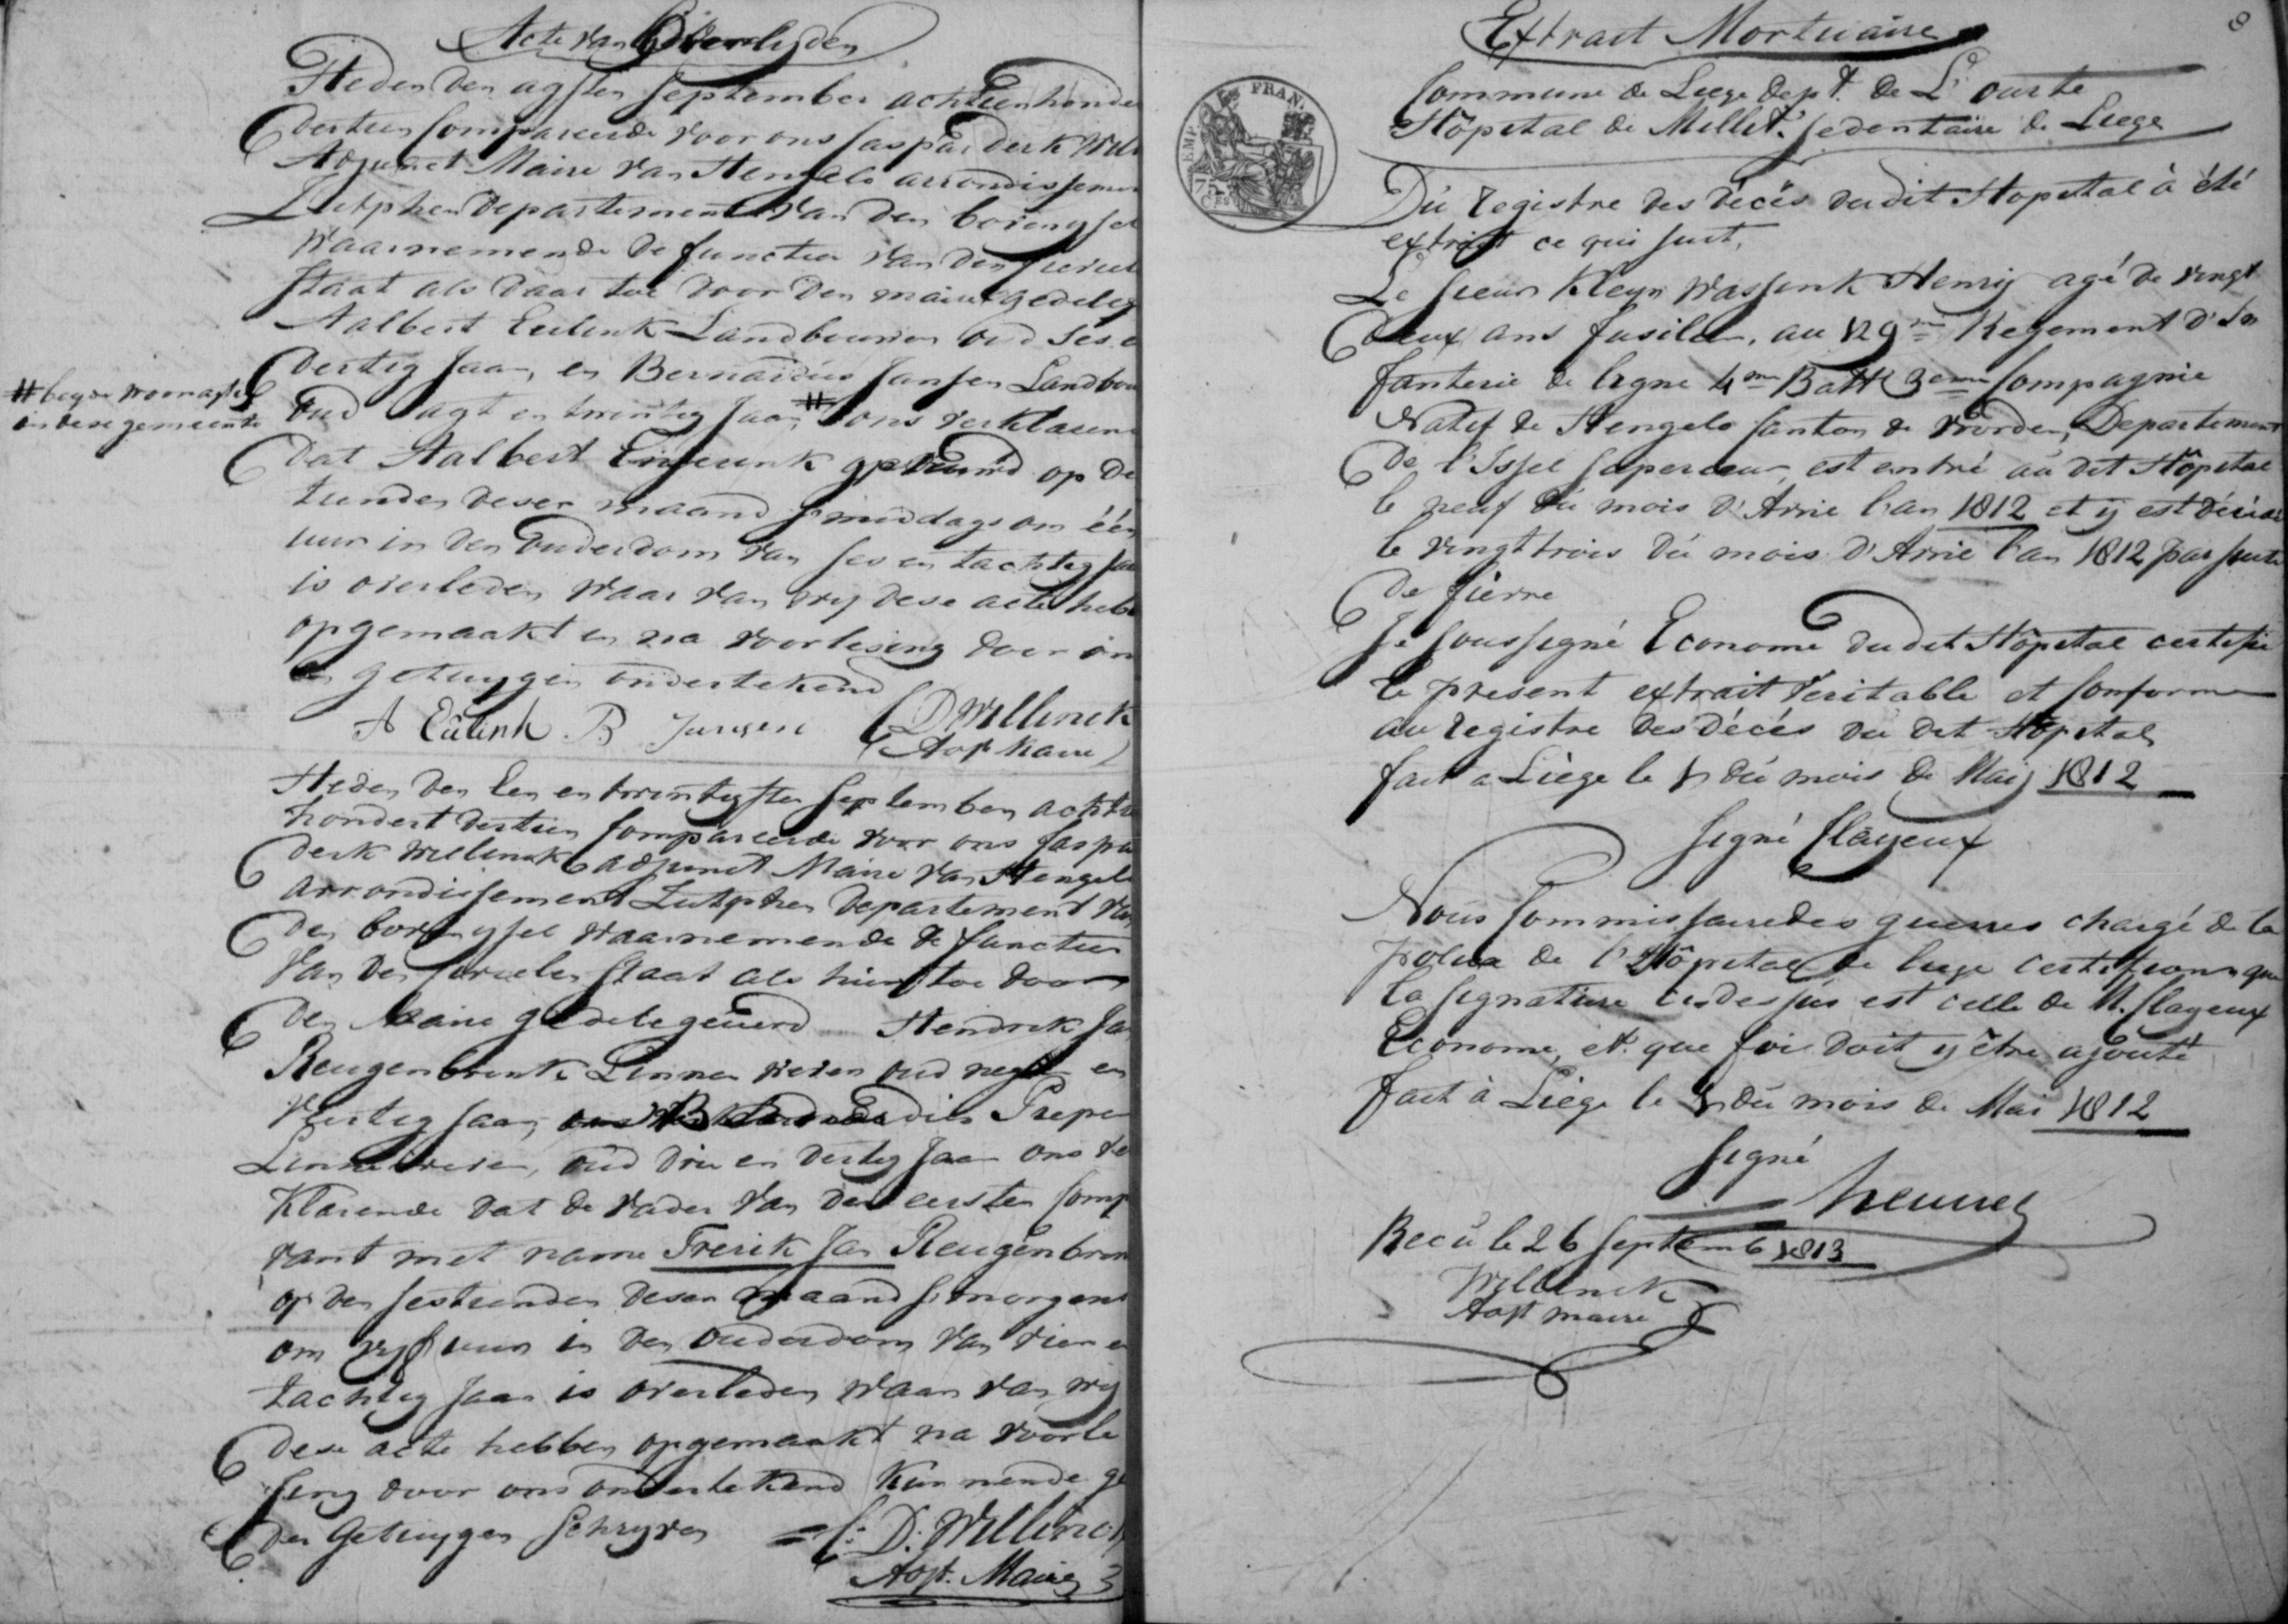 Acte van Overlyden
Heden den agsten September achttienhonde
dertien Compareerde voor ons Caspar Derk Will
Adjunct Maire van Hengelo arrondissemen
Zutphen Departement van den bovenyssel
Waarnemende de functien van den Civiel
Staat als daar toe door den maire gedeleg
Aalbert Eulink Landbouwer oud Ses e
dertig Jaar, en Bernardus Jansen Landbou
# beyde woonagtig
in dese gemeente
oud agt en twintig Jaar, # ons verklaren
dat Aalbert genaamd op de
tienden deser maand smiddags om één
uur in den Ouderdom van Ses en tachtig Jaa
is overleden waar van wy dese acte hebb
opgemaakt en na voorlesing door on
en getuygen ondertekend
A Eulink B Jansen CD Willinck
Adjt Maire
Heden den Een en twintigsten September achtti
hondert dertien Compareerde voor ons Caspa
Derk Willinck adjunct Maire van Hengelo
Arrondissement Zutphen Departement van
den bovenyssel waarnemende de functien
Van den Civielen Staat als hier toe door
den Maire gedelegeuerd Hendrik Ja
Reugenbrink Linnen wever oud negen en
Veertig Jaar, Prepe
Linnenwever, oud drie en dertig Jaar ons ve
Klarende dat de Vader van den eersten Comp
rant met name Frerik Jan Reugenbrin
op den sestienden deser maand smorgens
om vyf uur in den Ouderdom van vier en
tachtig Jaar is overleden waar van wy
dese acte hebben opgemaakt na voorle
sing door ons ondertekend Kunnende ge
der Getuygen Schryven = C: D: Willinck
Adjt. Maire
8
Extrait Mortuaire
EMP. FRAN.
75 CES
Commune de Liege Dept. de L'ourte
Hôpital de Millit. Sedentaire de Liege
Du registre des décès du dit Hopital à été
extrait ce qui suit,
Le Sieur Kleyn Wassink Henry agé de vingt
deux ans fusilier, au 129me Regement d'In
fanterie de ligne 4me Batt 3eme Compagnie
Natif de Hengelo Canton de Vorden, Departement
de l'Issel Superieur, est entré au dit Hôpital
le neuf du mois d'Avrie l'an 1812 et y est décédé
le vingt trois du mois d'Avrie l'an 1812 par suite
de fièvre
Je Soussigné Econome du dit Hôpital certifie
le present extrait veritable et conforme
au registre des décés du dit Hôpital
fait a Liège le 5 du mois de Mai 1812
Signé Clayeux
Nous Commissaire des guerres chargé de la
police de l'Hôpital de liege certifions que
la Signature ci-dessus est celle de M. Clayeux
Econome, et que foi doit y être ajouté
fait à Liège le 5 du mois de Mai 1812
Signé
Recu le 26 Septemb 1813
Willinck
Adjt maire